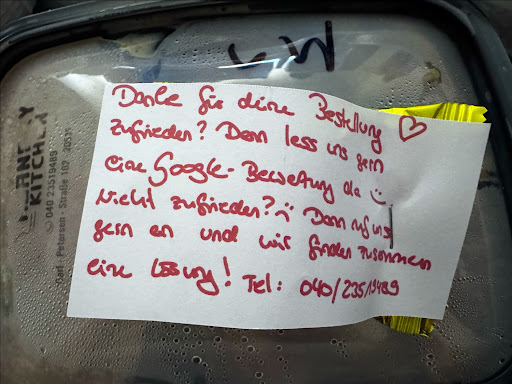 Danke für deine Bestellung ♡
Zufrieden? Dann lass uns gern
eine Google-Bewertung da :)
Nicht zufrieden? :( Dann ruf uns
gern an und wir finden zusammen
eine Lösung! Tel: 040/23519489
KITCHEN
040 23519489
Carl-Petersen-Straße 102, 20535